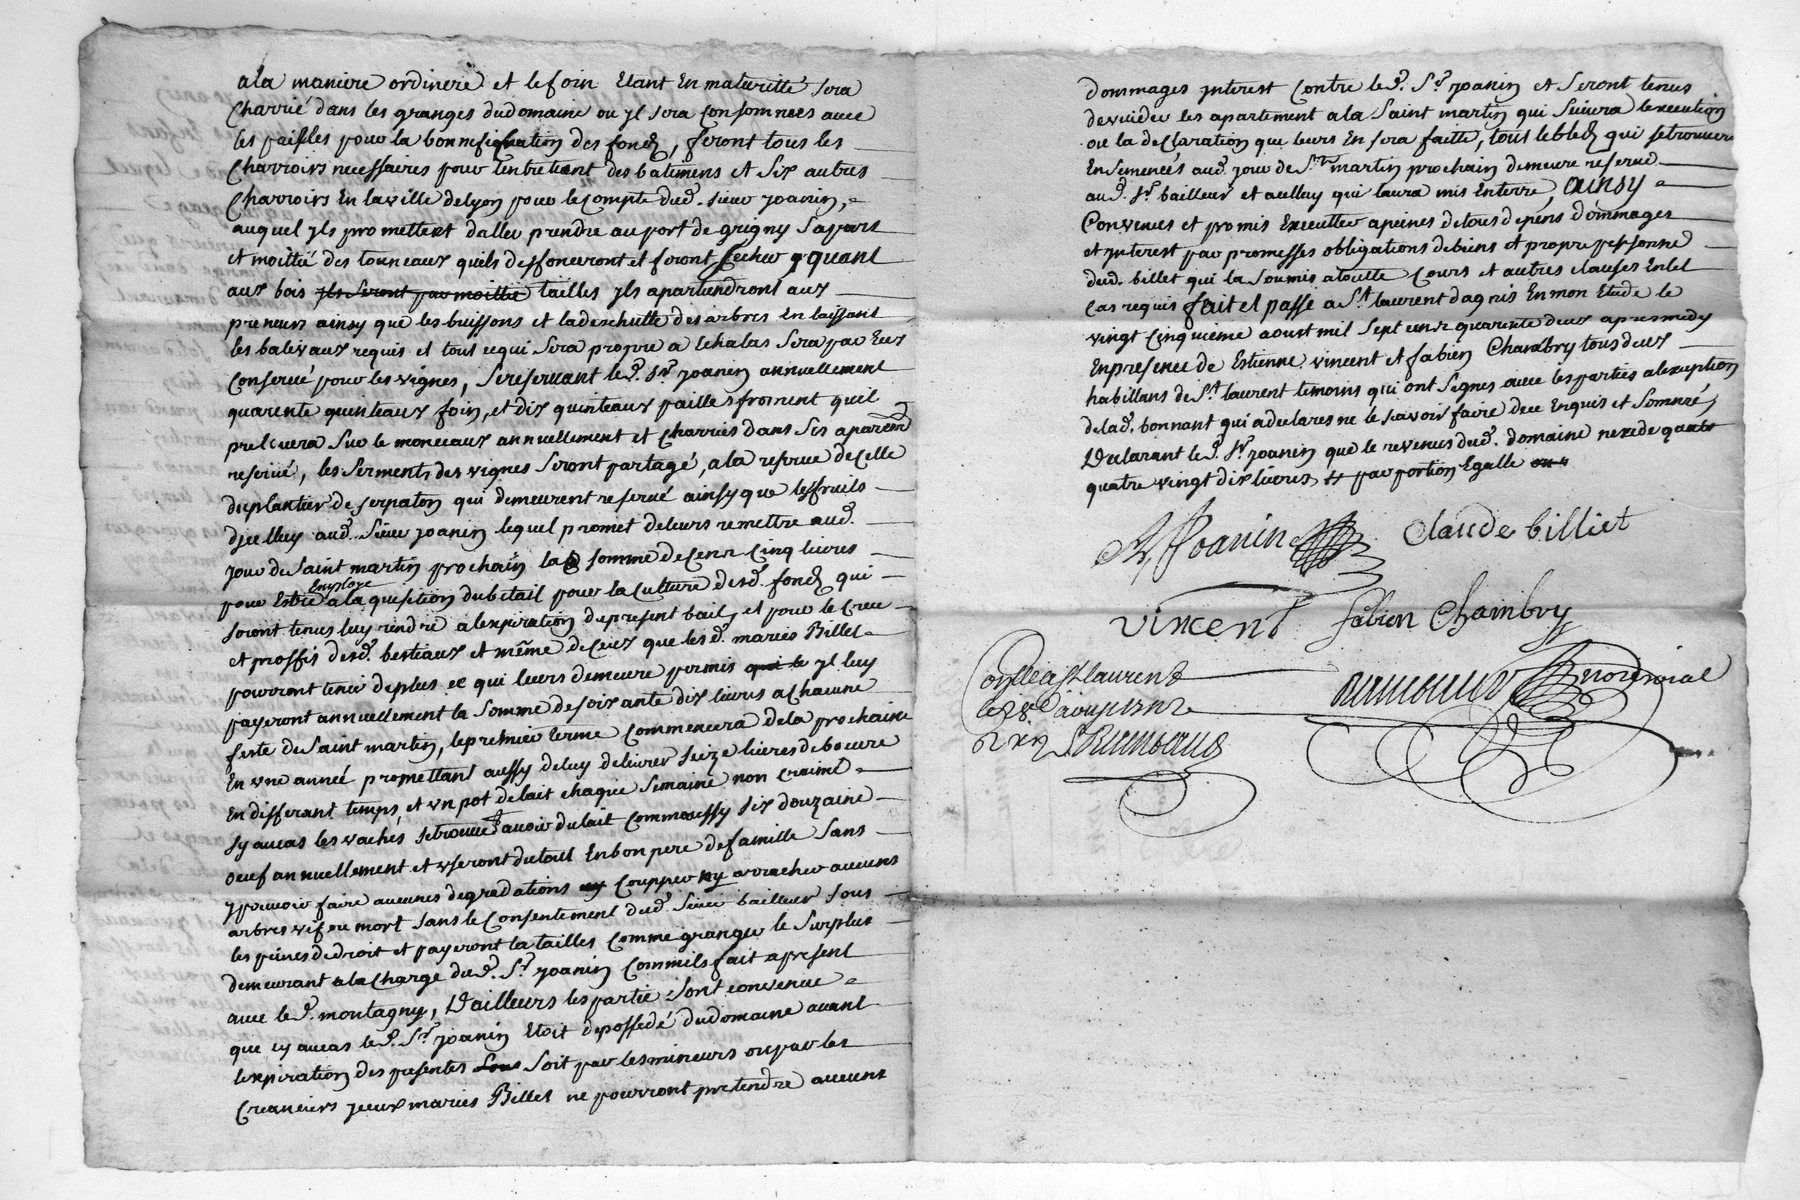 a la maniere ordinere et le foin Etant En maturitté sera
Charrié dans les granges dudomaine ou yl sera Consommées avec
les pailles pour la bonnification des fonds, feront tous les
Charroirs necessaires pour lentretient des batimens et six autres
Charroirs En laville delyon pour le Compte dud. sieur joanin,
auquel yls promettent daller prendre au port de grigny sapart
et moittié des tonneaux quels deffoncuront et feront secher quant
aux bois yls seront par moittié tailles yls apartiendront aux
preneurs ainsy que les buissons et la deschutte des arbres En laissant
les balivaux requis et tout cequi sera propre a Echalas sera par Eux
Conservé pour les vignes, se reservant led. sr. joanin annuellement
quarente quinteaux foin, et dix quinteaux pailles froment quil
prelevera sur le monceaux annuellement et Charriés dans ses apartem
reservé, les serments des vignes seront partagé, a la reserve decelle
duplantier de serpaton qui demeurent reservé ainsy que les fruits
dicelluy aud. sieur joanin lequel promet deleurs remettre aud.
jour de saint martin prochain la somme decent cinq livres
pour Estre Employé a la question dubetail pour la Culture desd. fonds qui
seront tenus luy rendre a lexpiration dupresent bail, et pour le Creu
et proffis desd. bestiaux et même deceux que lesd. mariés Billet
pourront tenir deplus ce qui leurs demeure permis qui le yl luy
payeront annuellement la somme desoixante dix livres a chacune
feste de saint martin, lepremier terme commencera dela prochaine
En une année promettant aussy deluy delivrer seize livres debeurre
En differant temps, et un pot delait chaque semaine non Craimé
sy aucas les vaches se trouve avoir dulait Commaussy six douzaine
oeuf annuellement et useront dutout En bon pere de famille sans
y pouvoir faire aucunes degradations ny coupper ny arracher aucuns
arbres vif ou mort sans le Consentement dud. sieur bailleur sous
les peines dedroit et payeront la tailles Comme granger le surplus
demeurant a la charge dud. sr. joanin Commils fait apresent
avec led. montagny, D'ailleurs les partie sont convenue
que cy aucas led. sr. joanin Etoit depossedé dudomaine avant
lexpiration des presentes sous soit par les mineurs ou par les
Creanciers yceux mariés Billet ne pourront pretendre aucuns
dommages ynterest Contre led. sr. joanin et seront tenus
devuider les apartement a la saint martin qui suivra lexecution
ou la declaration que leurs En sera faitte, tous lebled qui se trouvera
Ensemencés aud. jour de st. martin prochain demeure reservé
aud. sr. bailleur et acelluy qui laura mis Enterre, ainsy
Convenues et promis Executter apeines detous depens dommages
et ynterest par promesses obligations debiens et propre personne
dud. billet qui la soumis atoutte Cours et autres clauses En tel
cas requis fait et passé a st. laurent dagnis En mon Etude le
vingt cinquieme aoust mil sept cent quarente deux apresmedy
En presence de Estienne vincent et fabien Chambry tous deux
habittans de st. laurent temoins qui ont signés avec les parties alexeption
delad. bonnant qui adeclarés ne le scavoir faire dece Enquis et sommé,
Declarant led. sr. joanin que le revenus dud. domaine nexede
quatre vingt dix livres par portion Egalle
Joanin Claude billiet
vincent fabien Chambry
Collé a st laurent